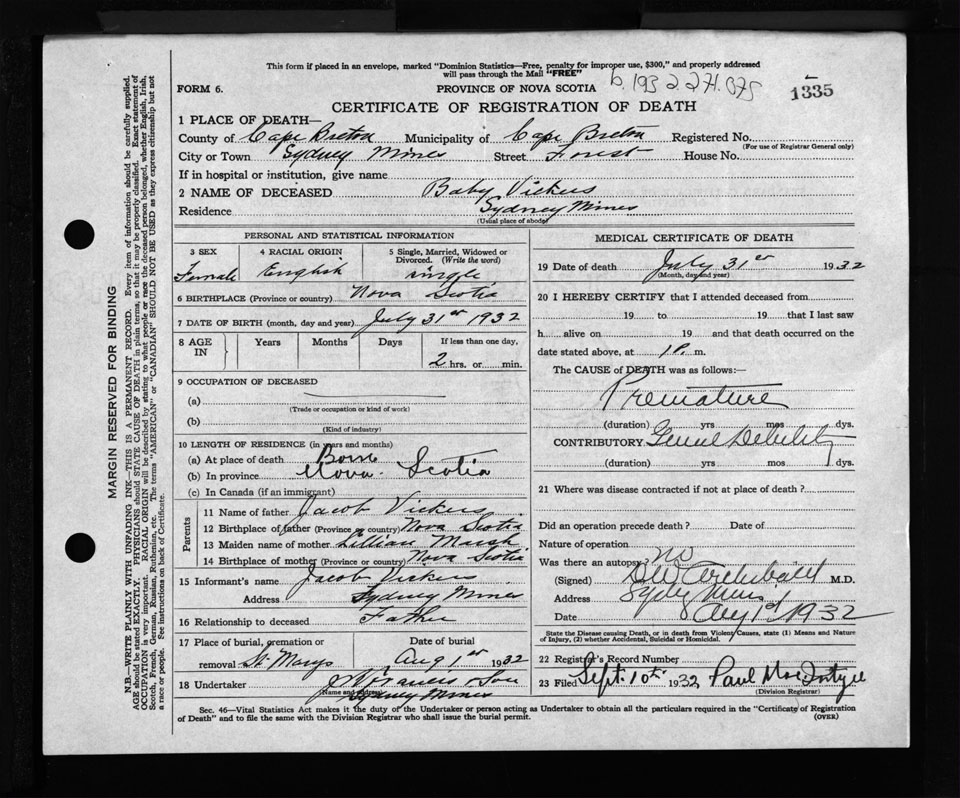 This form if placed in an envelope, marked "Dominion Statistics—Free, penalty for improper use, $300," and properly addressed
will pass through the Mail "FREE"
FORM 6. PROVINCE OF NOVA SCOTIA b. 1932 1335
CERTIFICATE OF REGISTRATION OF DEATH
1 PLACE OF DEATH—
County of Cape Breton Municipality of Cape Breton Registered No.
(For use of Registrar General only)
City or Town Sydney Mines Street Forest House No.
If in hospital or institution, give name
2 NAME OF DECEASED Baby Vickers
Residence Sydney Mines
(Usual place of abode)
PERSONAL AND STATISTICAL INFORMATION
3 SEX 4 RACIAL ORIGIN 5 Single, Married, Widowed or
Divorced. (Write the word)
Female English single
6 BIRTHPLACE (Province or country) Nova Scotia
7 DATE OF BIRTH (month, day and year) July 31st 1932
8 AGE IN Years Months Days If less than one day,
2 hrs. or min.
9 OCCUPATION OF DECEASED
(a)
(Trade or occupation or kind of work)
(b)
(Kind of industry)
10 LENGTH OF RESIDENCE (in years and months)
(a) At place of death Born
(b) In province Nova Scotia
(c) In Canada (if an immigrant)
Parents
11 Name of father Jacob Vickers
12 Birthplace of father (Province or country) Nova Scotia
13 Maiden name of mother Lillian Marsh
14 Birthplace of mother (Province or country) Nova Scotia
15 Informant's name Jacob Vickers
Address Sydney Mines
16 Relationship to deceased Father
17 Place of burial, cremation or Date of burial
removal St. Marys Aug 1st 1932
18 Undertaker Francis & Son
(Name and address) Sydney Mines
MEDICAL CERTIFICATE OF DEATH
19 Date of death July 31st 1932
(Month, day and year)
20 I HEREBY CERTIFY that I attended deceased from
19 to 19 that I last saw
h alive on 19 and that death occurred on the
date stated above, at 1 P. m.
The CAUSE of DEATH was as follows:—
Premature
(duration) yrs mos dys.
CONTRIBUTORY Debility
(duration) yrs mos dys.
21 Where was disease contracted if not at place of death?
Did an operation precede death? Date of
Nature of operation
Was there an autopsy? no
(Signed) Archibald M.D.
Address Sydney Mines
Date Aug 1st 1932
State the Disease causing Death, or in death from Violent Causes, state (1) Means and Nature
of Injury, (2) whether Accidental, Suicidal or Homicidal.
22 Registrar's Record Number
23 Filed Sept. 10th 1932 Paul MacIntyre
(Division Registrar)
Sec. 46—Vital Statistics Act makes it the duty of the Undertaker or person acting as Undertaker to obtain all the particulars required in the "Certificate of Registration
of Death" and to file the same with the Division Registrar who shall issue the burial permit. (OVER)
MARGIN RESERVED FOR BINDING
N.B.—WRITE PLAINLY WITH UNFADING INK—THIS IS A PERMANENT RECORD. Every item of information should be carefully supplied.
AGE should be stated EXACTLY. PHYSICIANS should STATE CAUSE OF DEATH in plain terms, so that it may be properly classified. Exact statement of
OCCUPATION is very important. RACIAL ORIGIN will be described by stating to what people or race the deceased person belonged, whether English, Irish,
Scotch, French, German, Russian, Ruthenian, etc. The terms "AMERICAN" or "CANADIAN" SHOULD NOT BE USED as they express citizenship but not
a race or people. See instructions on back of Certificate.